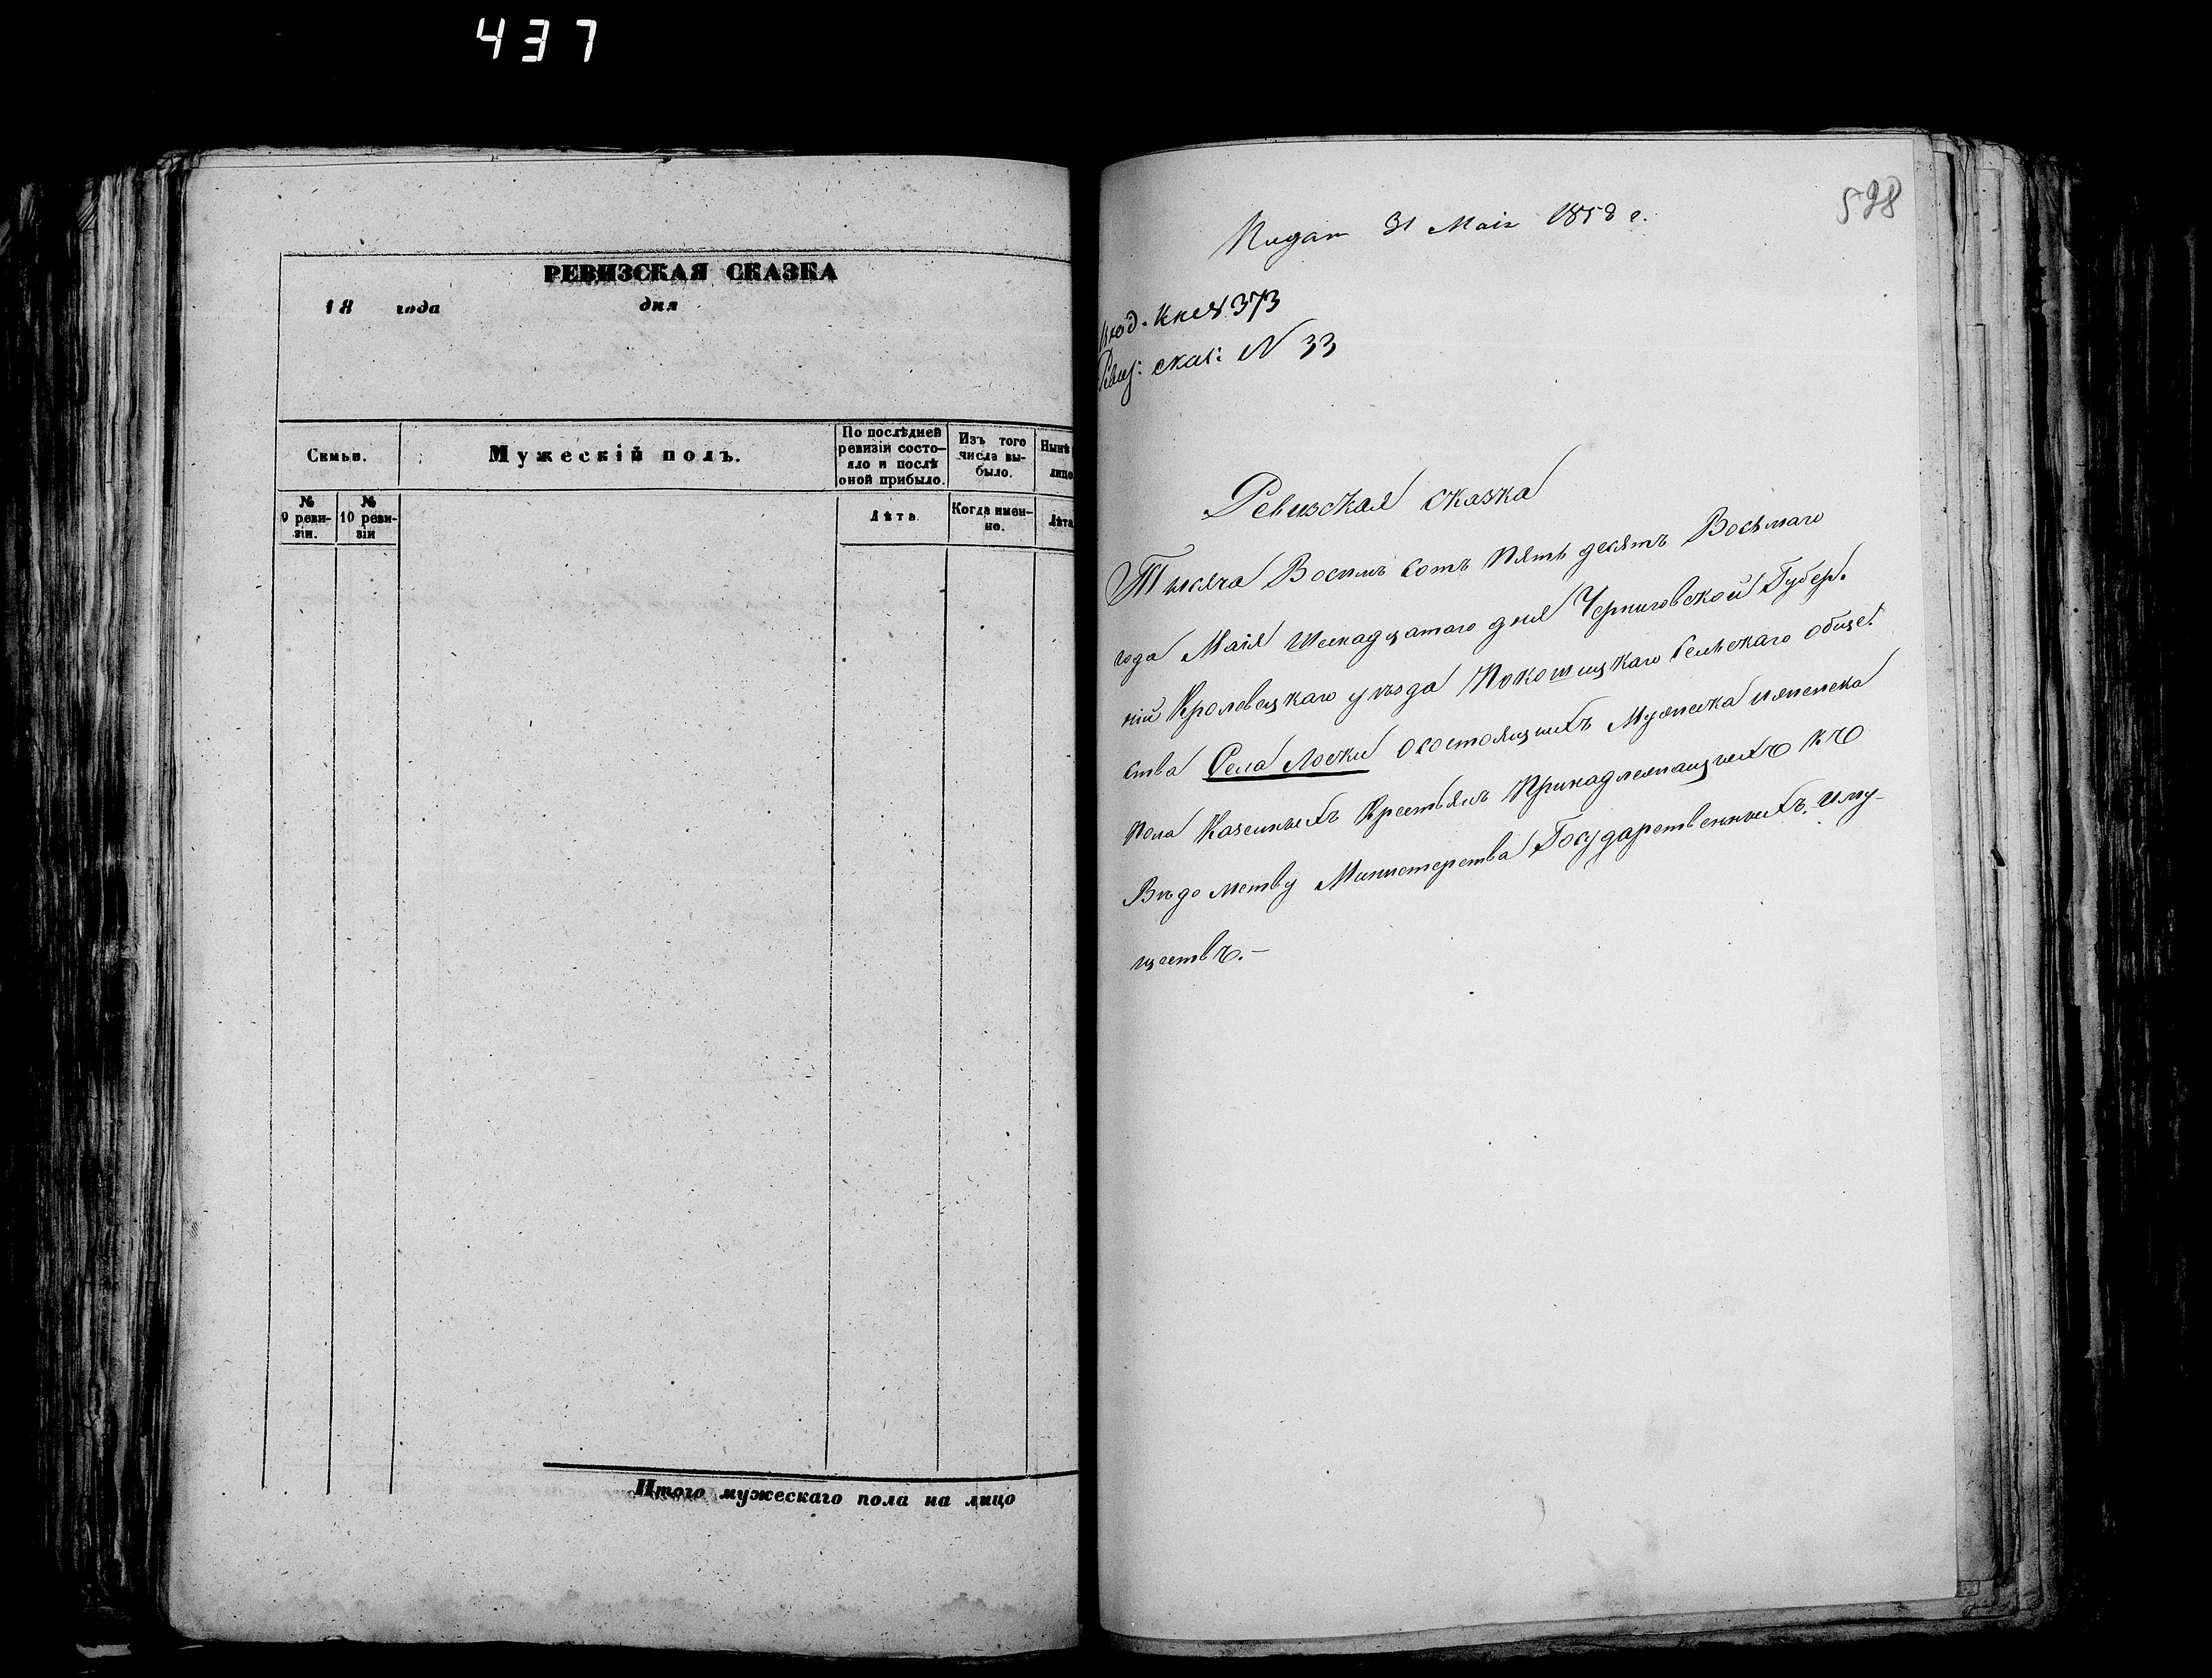 437
РЕВИЗСКАЯ СКАЗКА
18 года дня
Семьи.
Мужескій полъ.
По послѣдней ревизіи состо-яло и послѣ оной прибыло.
Изъ того числа вы-было.
Нынѣ лицо
№ 9 реви-зіи.
№ 10 реви-зіи
Лѣта.
Когда имен-но.
Лѣта
Итого мужескаго пола на лицо
598
Подан 31 Маія 1858 г.
Вход. Кн. № 373
Ревиз: сказ: N 33
Ревизская сказка
Тысяча Восимъ сотъ Пять десятъ Восьмаго
года Маія Шеснадцатаго дня Черниговской Губер.
ніи Кролевецкаго уѣзда Покошицкаго Сельскаго обще:
ства Села Лоски осостоящихъ Мужеска и женска
пола Казенныхъ Крестьянъ Принадлежащихъ къ
Вѣдомству Министерства Государственныхъ иму-
ществъ.-